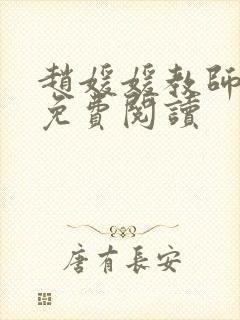 趙媛媛教師
免費閱讀
唐有長安